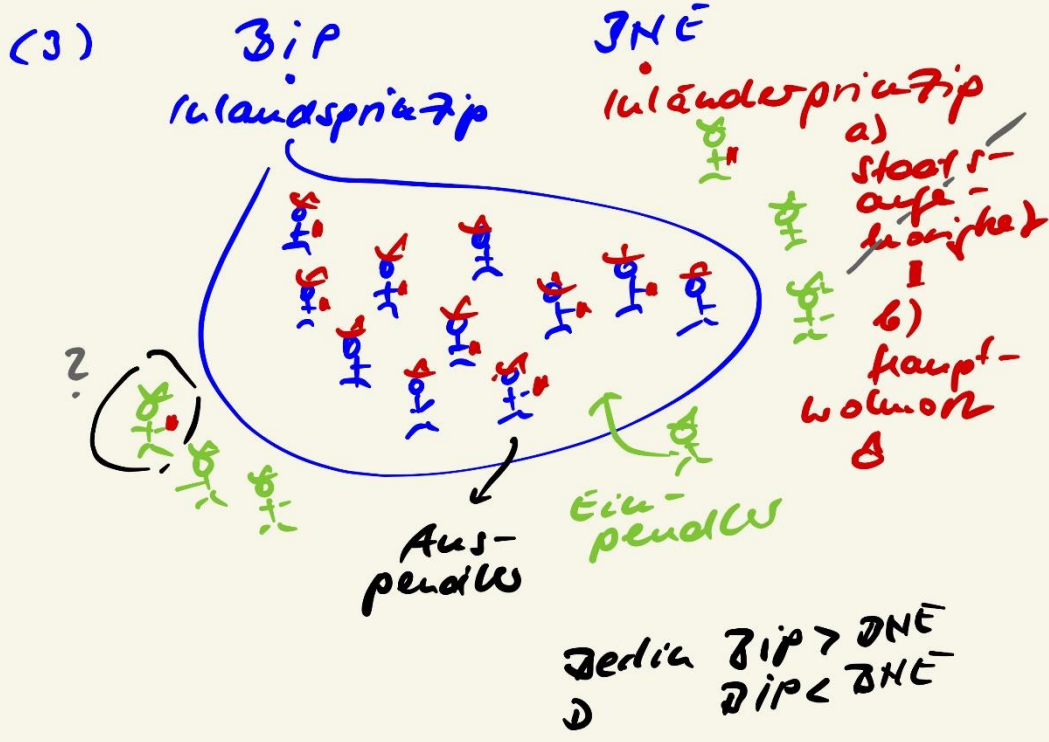 (3)
BiP
BNE
Inlandsprinzip
Inländerprinzip
a)
Staats-
ange-
hörigkeit
b)
Haupt-
wohnort
?
Aus-
pendler
Ein-
pendler
Berlin BiP > BNE
D BiP < BNE